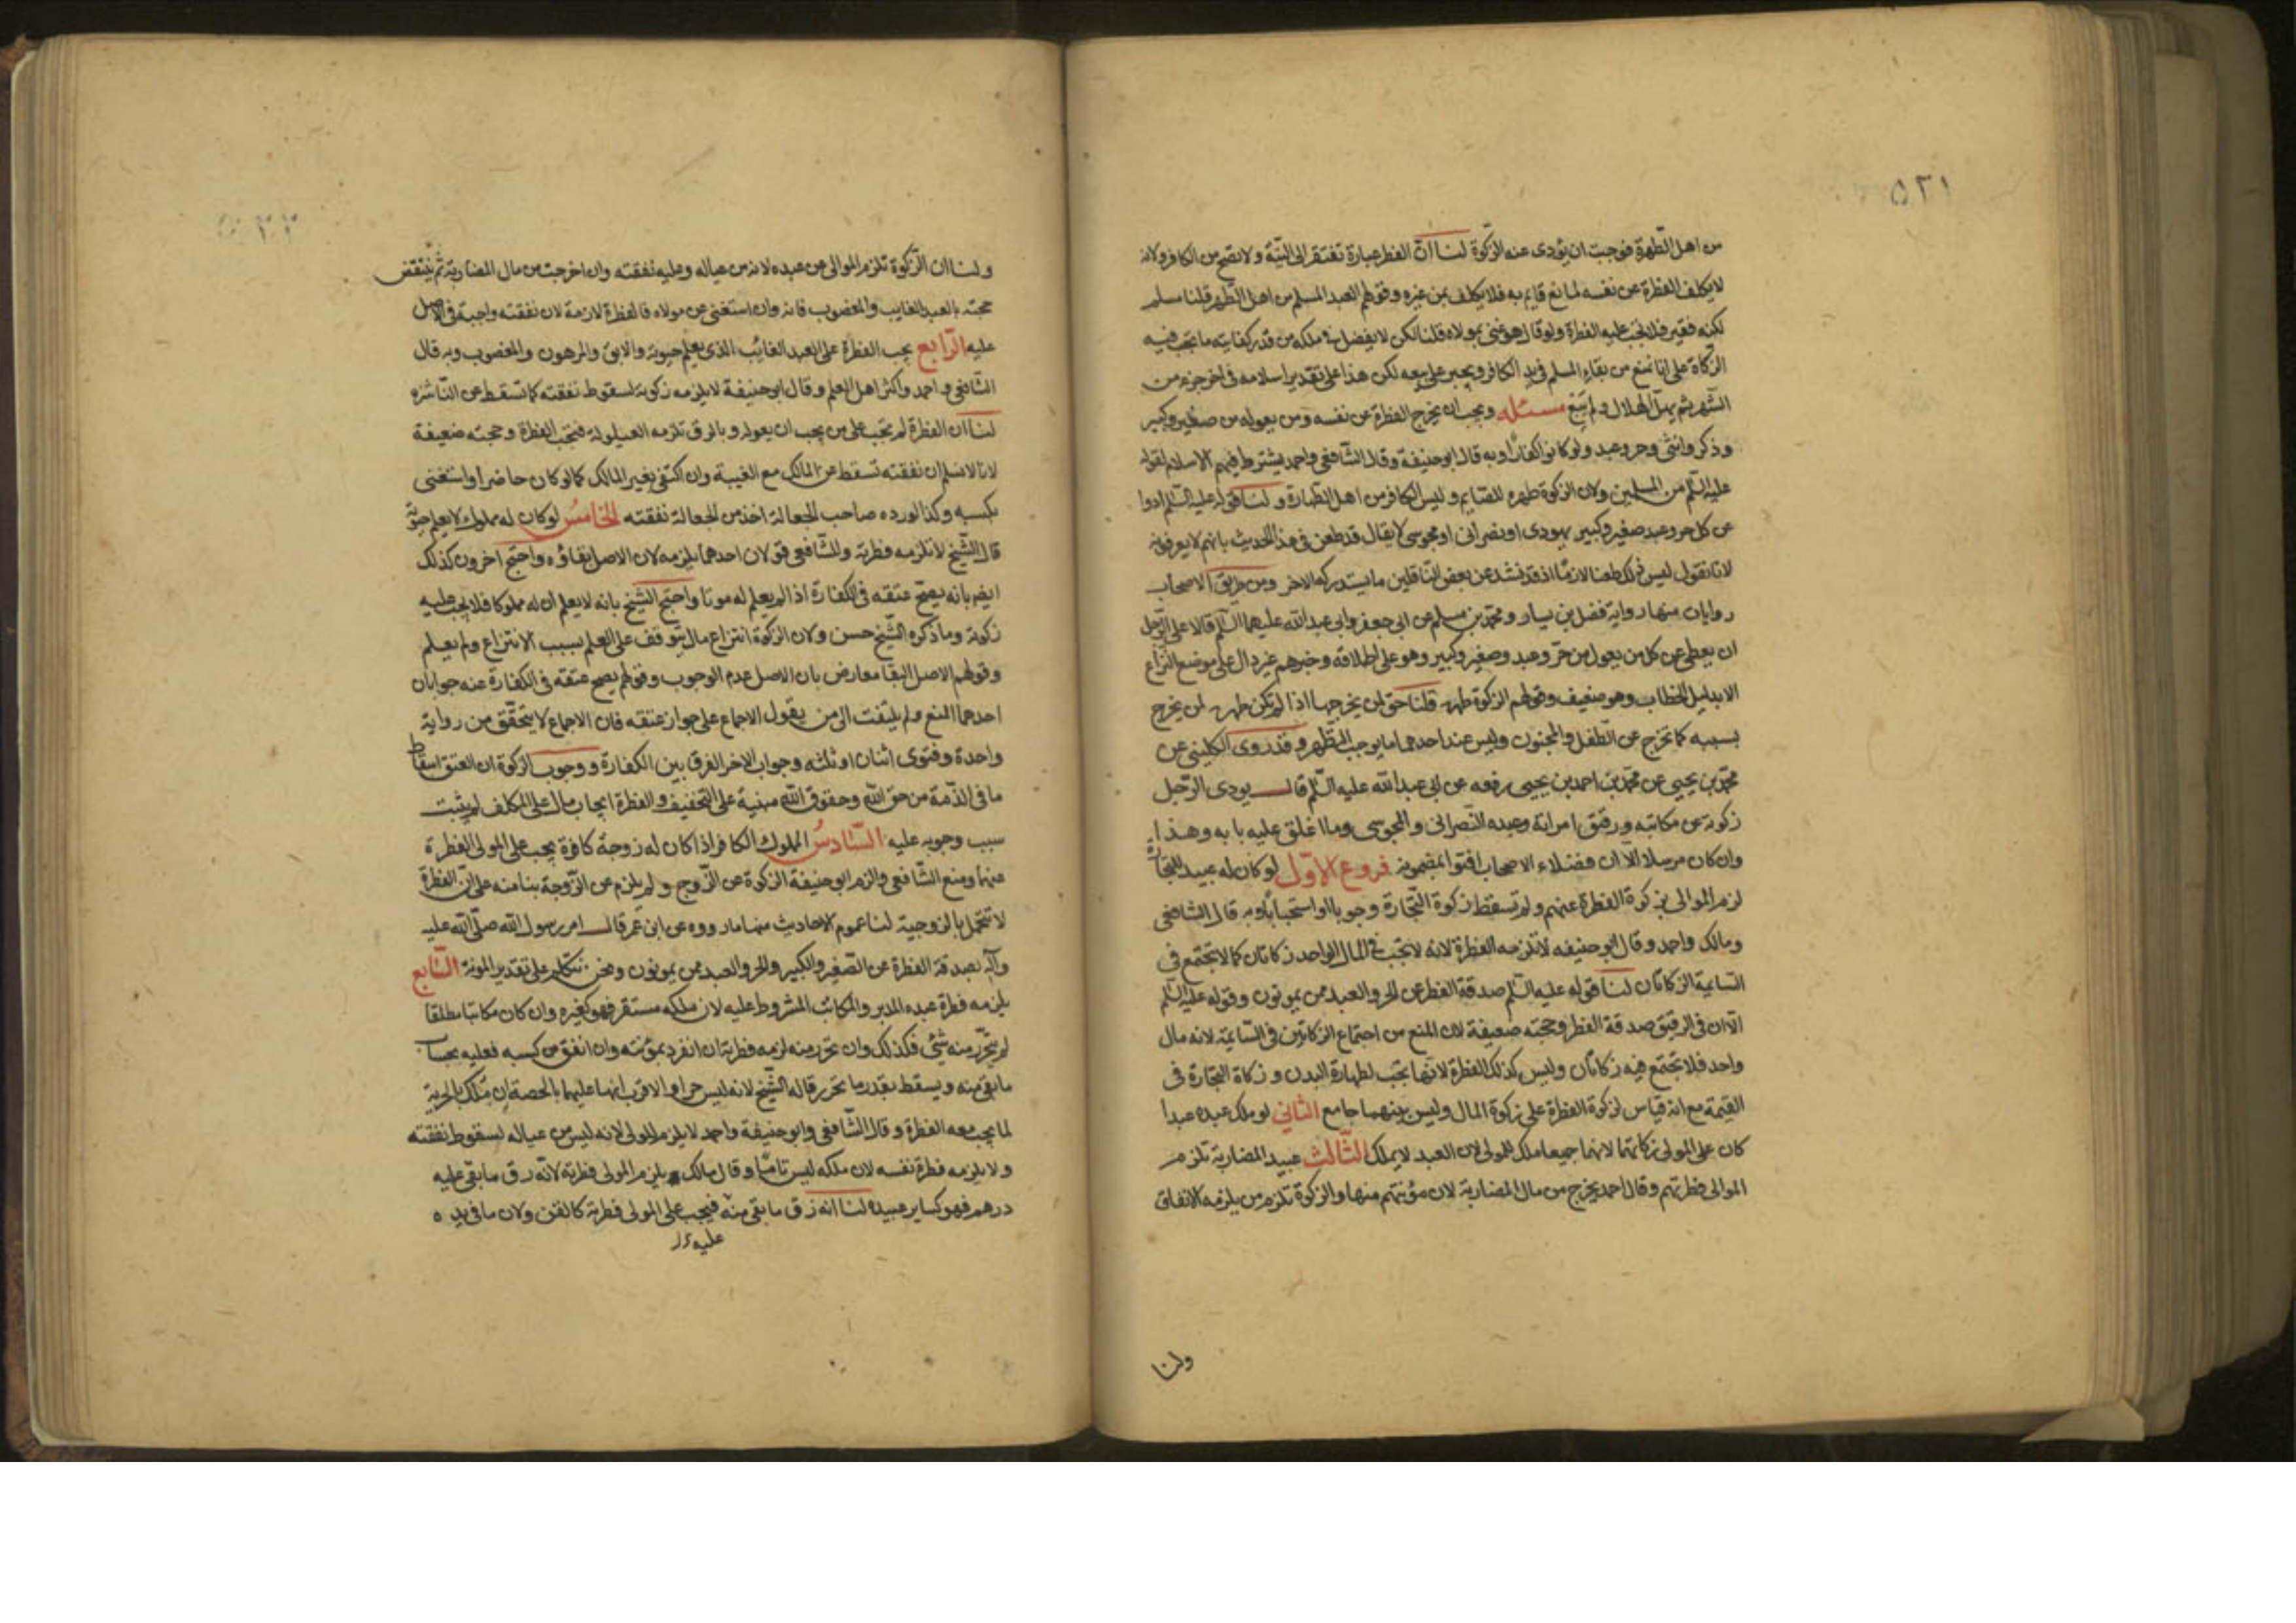 ٥٢١
من اهل الطهرة فوجبت ان يؤدى عنه الزكوة لنا ان الفطر عبارة تفتقر الى النيّة ولا تصح من الكافر ولانه
لا يكلف الفطرة عن نفسه لمانع قايم به فلا يكلف بمن غيره وقولهم العبد المسلم من اهل الطهر قلنا مسلم
لكنه فقير فلا تجب عليه الفطرة ولو قال هو غنى بمولاه قلنا لكن لا يفضل فى ملكه من قدر كفايته ما تجب فيه
الزكاة على انا نمنع من بقاء المسلم فى يد الكافر ويجبر على بيعه لكن هذا على تقدير اسلامه فى اخر جزء من
الشهر ثم يهل الهلال ولم يبع مسئله ويجب ان يخرج الفطرة عن نفسه ومن يعوله من صغير وكبير
وذكر وانثى وحر وعبد ولو كانوا كفارا وبه قال ابو حنيفة وقال الشافعى واحمد يشترط فيهم الاسلام لقوله
عليه السّلم من المسلمين ولان الزكوة طهرة للصايم وليس الكافر من اهل الطهارة ولنا قوله عليه السّلم ادوا
عن كل حر وعبد صغير وكبير يهودى او نصرانى او مجوسى لا يقال قد طعن فى هذا الحديث بانهم لا يعرفونه
لانا نقول ليس ذلك طعنا لازما اذ قد نشد عن بعض الناقلين ما يستدركه الاخر ومن طريق الاصحاب
روايان منها رواية فضل بن يسار ومحمد بن مسلم عن ابى جعفر وابى عبد الله عليهما السّلم قالا على الرجل
ان يعطى عن كل من يعول من حرّ وعبد وصغير وكبير وهو على اطلاقه وخبرهم غير دال على موضع النزاع
الا بدليل الخطاب وهو ضعيف وقولهم الزكوة طهرة قلنا حق لمن يخرجها اذا لم تكن طهرة لمن يخرج
بسببه كما تخرج عن الطفل والمجنون وليس عند احدهما ما يوجب التطهر وقد روى الكلينى عن
محمد بن يحيى عن محمد بن احمد بن يحيى رفعه عن ابى عبد الله عليه السّلم قال يودى الرّجل
زكوته عن مكاتبه ورقيق امراته وعبده النصرانى والمجوسى وما اغلق عليه بابه وهذا
وان كان مرسلا الا ان فضلاء الاصحاب افتوا بمضمونه فروع الاوّل لو كان له عبيد للتجارة
لزم الموالى زكوة الفطرة عنهم ولم تسقط زكوة التجارة وجوبا او استحبابا وبه قال الشافعى
ومالك واحمد وقال ابو حنيفه لا تلزمه الفطرة لانه لا تجب فى المال الواحد زكاتان كما لا تجتمع فى
السايمة الزكاتان لنا قوله عليه السّلم صدقة الفطر عن الحر والعبد ممن يمونون وقوله عليه السّلم
الا ان فى الرقيق صدقة الفطر وحجته ضعيفة لان المنع من اجتماع الزكاتين فى السّايمة لانه مال
واحد فلا تجتمع فيه زكاتان وليس كذلك الفطرة لانها تجب لطهارة البدن وزكاة التجارة فى
القيمة مع انه قياس لزكوة الفطرة على زكوة المال وليس بينهما جامع الثانى لو ملك عبده عبدا
كان على المولى زكاتهما لانهما جميعا ملك للمولى لان العبد لا يملك الثّالث عبيد المضاربة تلزم
الموالى فطرتهم وقال احمد يخرج من مال المضاربة لان مؤنتهم منها والزكوة تلزم من يلزمه الانفاق
ولنا
ولنا ان الزكوة تلزم الموالى عن عبده لانه من عياله وعليه نفقته وان اخرجت من مال المضاربة ثم ينتقض
حجته بالعبد الغايب والمغصوب فانه وان استغنى عن مولاه فالفطرة لازمة لان نفقته واجبة فى الاصل
عليه الرّابع يجب الفطرة على العبد الغائب الذى يعلم حيوته والابق والمرهون والمغصوب وبه قال
الشافعى واحمد واكثر اهل العلم وقال ابو حنيفة لا يلزمه زكوته لسقوط نفقته كما تسقط عن الناشزه
لنا ان الفطرة لم تجب على من يجب ان يعوله وبالرق تلزمه العيلولة فتجب الفطرة وحجته ضعيفة
لانا لا نسلم ان نفقته تسقط عن المالك مع الغيبة وان اكتفى بغير المالك كما لو كان حاضرا واستغنى
بكسبه وكذا لو رده صاحب الجعالة اخذ من الجعالة نفقته الخامسُ لو كان له مملوك لا يعلم حيوته
قال الشّيخ لا تلزمه فطرته وللشّافعى قولان احدهما يلزمه لان الاصل بقاؤه واحتج اخرون كذلك
ايضا بانه يصح عتقه فى الكفارة اذا لم يعلم له موتا واحتج الشيخ بانه لا يعلم ان له مملوكا فلا يجب عليه
زكوته وما ذكره الشّيخ حسن ولان الزكوة انتزاع مال يتوقف على العلم بسبب الانتزاع ولم يعلم
وقولهم الاصل البقا معارض بان الاصل عدم الوجوب وقولهم يصح عتقه فى الكفارة عنه جوابان
احدهما المنع ولم يلتفت الى من يقول الاجماع على جواز عتقه فان الاجماع لا يتحقّق من رواية
واحدة وفتوى اثنان او ثلثه وجواب الاخر الفرق بين الكفارة ووجوب الزكوة ان العتق اسقاط
ما فى الذّمة من حق الله وحقوق الله مبنية على التخفيف والفطرة ايجاب مال على المكلف لم يثبت
سبب وجوبه عليه السّادسُ المملوك الكافر اذا كان له زوجة كافرة يجب على المولى الفطرة
عنهما ومنع الشّافعى والزم ابو حنيفة الزكوة عن الزّوج ولم يلزم عن الزّوجة بنا منه على ان الفطرة
لا تتحمل بالزوجية لنا عموم الاحاديث منها ما رووه عن ابن عمر قال امر رسول الله صلّى الله عليه
وآله بصدقة الفطرة عن الصّغير والكبير والحر والعبد ممن يمونون ونحن نتكلم على تقدير المونة السّابع
يلزمه فطرة عبده المدبر والمكاتب المشروط عليه لان ملكه مستقر فهو كغيره وان كان مكاتبا مطلقا
لم يتحرّر منه شئ فكذلك وان تحرّر منه لزمه فطرته ان انفرد بمؤنته وان انفق من كسبه فعليه بحساب
ما بقى منه ويسقط بقدر ما تحرر قاله الشّيخ لانه ليس حرا والاقرب انها عليهما بالحصة ان تملّك بالحرية
لما يجب معه الفطرة وقال الشّافعى وابو حنيفة واحمد لا يلزم المولى لانه ليس من عياله لسقوط نفقته
ولا يلزمه فطرة نفسه لان ملكه ليس تامّا وقال مالك يلزم المولى فطرته لانّه رق ما بقى عليه
درهم فهو كساير عبيده لنا انه رق ما بقى منه فيجب على المولى فطرته كالقن ولان ما فى يده
عليه